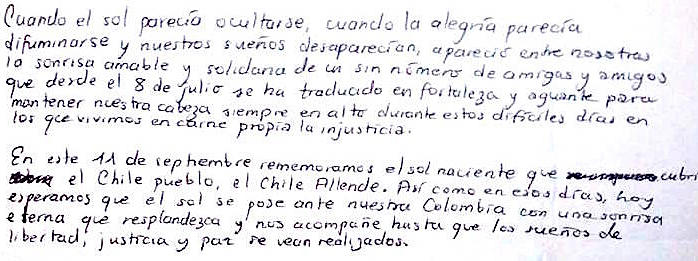 Cuando el sol parecía ocultarse, cuando la alegría parecía
difuminarse y nuestros sueños desaparecían, apareció entre nosotras
la sonrisa amable y solidaria de un sin número de amigas y amigos
que desde el 8 de julio se ha traducido en fortaleza y aguante para
mantener nuestra cabeza siempre en alto durante estos difíciles días en
los que vivimos en carne propia la injusticia.
En este 11 de septiembre rememoramos el sol naciente que cubri
el Chile pueblo, el Chile Allende. Así como en esos días, hoy
esperamos que el sol se pose ante nuestra Colombia con una sonrisa
eterna que resplandezca y nos acompañe hasta que los sueños de
libertad, justicia y paz se vean realizados.